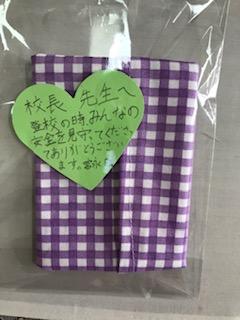 校長 先生へ
登校の時、みんなの
安全を見守ってくださっ
てありがとうござい
ます。